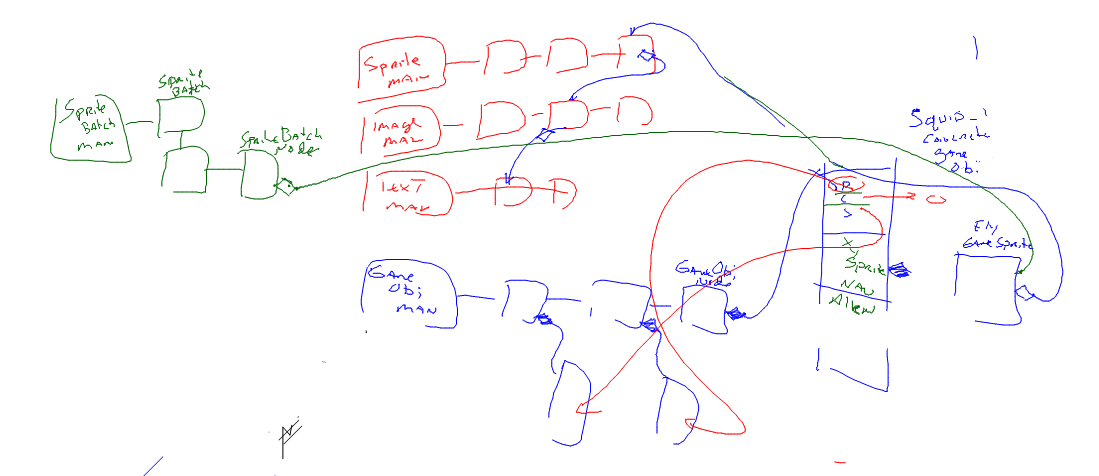 Sprite
Batch
Man
Sprite
Batch
SpriteBatch
Node
Sprite
Man
Image
Man
Text
Man
Game
Obj
Man
GameObj
Node
Squid_1
Concrete
Game
Obj
P
C
S
X
Sprite
Alien
Game Sprite